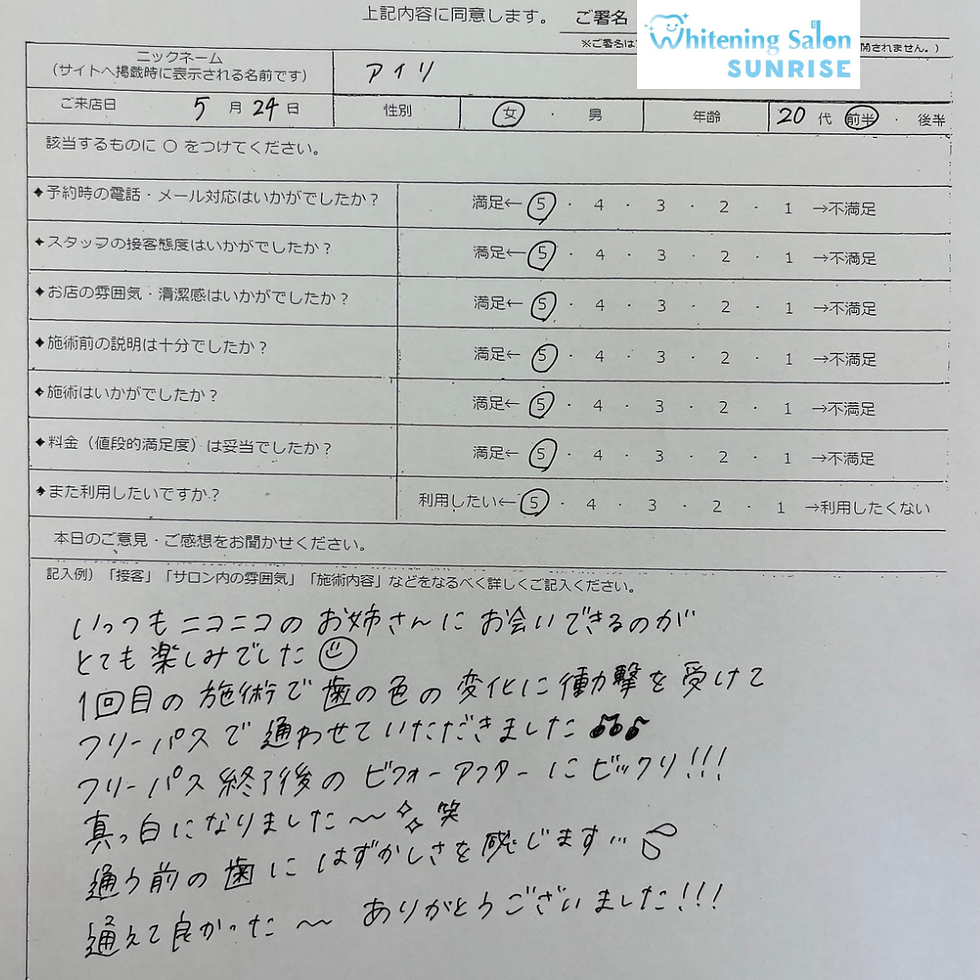 上記内容に同意します。 ご署名
※ご署名は 開されません。)
Whitening Salon
SUNRISE
ニックネーム
(サイトへ掲載時に表示される名前です) アイリ
ご来店日 5月24日 性別 女・男 年齢 20代 前半・後半
該当するものに○をつけてください。
◆予約時の電話・メール対応はいかがでしたか? 満足←5・4・3・2・1→不満足
◆スタッフの接客態度はいかがでしたか? 満足←5・4・3・2・1→不満足
◆お店の雰囲気・清潔感はいかがでしたか? 満足←5・4・3・2・1→不満足
◆施術前の説明は十分でしたか? 満足←5・4・3・2・1→不満足
◆施術はいかがでしたか? 満足←5・4・3・2・1→不満足
◆料金(値段的満足度)は妥当でしたか? 満足←5・4・3・2・1→不満足
◆また利用したいですか? 利用したい←5・4・3・2・1→利用したくない
本日のご意見・ご感想をお聞かせください。
記入例)「接客」「サロン内の雰囲気」「施術内容」などをなるべく詳しくご記入ください。
いつもニコニコのお姉さんにお会いできるのが
とても楽しみでした
1回目の施術で歯の色の変化に衝撃を受けて
フリーパスで通わせていただきました♪♪♪
フリーパス終了後のビフォーアフターにビックリ!!!
真っ白になりました〜 笑
通う前の歯にはずかしさを感じます…
通えて良かった〜 ありがとうございました!!!